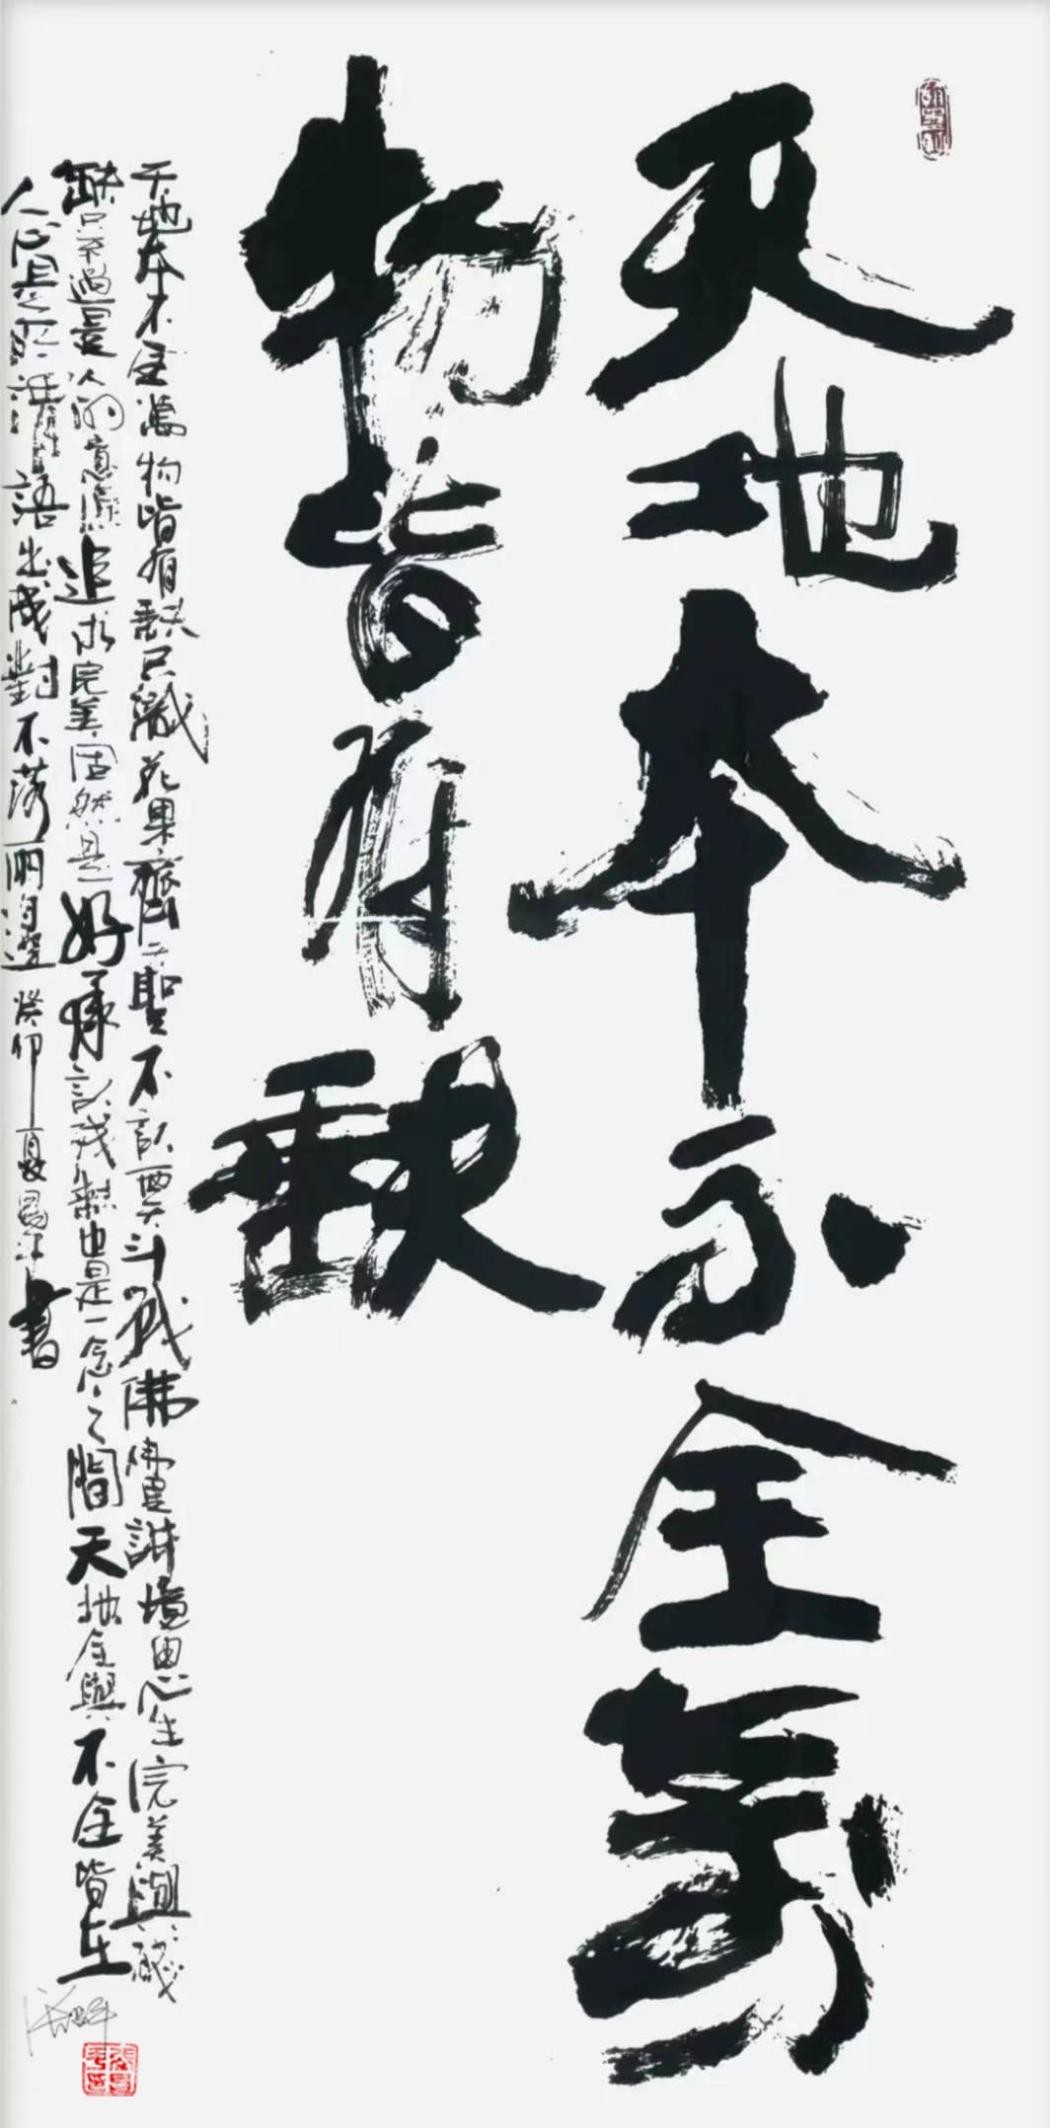 天地本不全萬
物皆有缺
天地本不全萬物皆有缺只識花果齊天聖不認西天斗戰佛佛重講境由心生完美與殘
缺只不過是人的意識追求完美固然是好樣認殘缺也是一念之間天地全與不全皆在
人心是六祖語出成對不落兩邊癸卯夏書